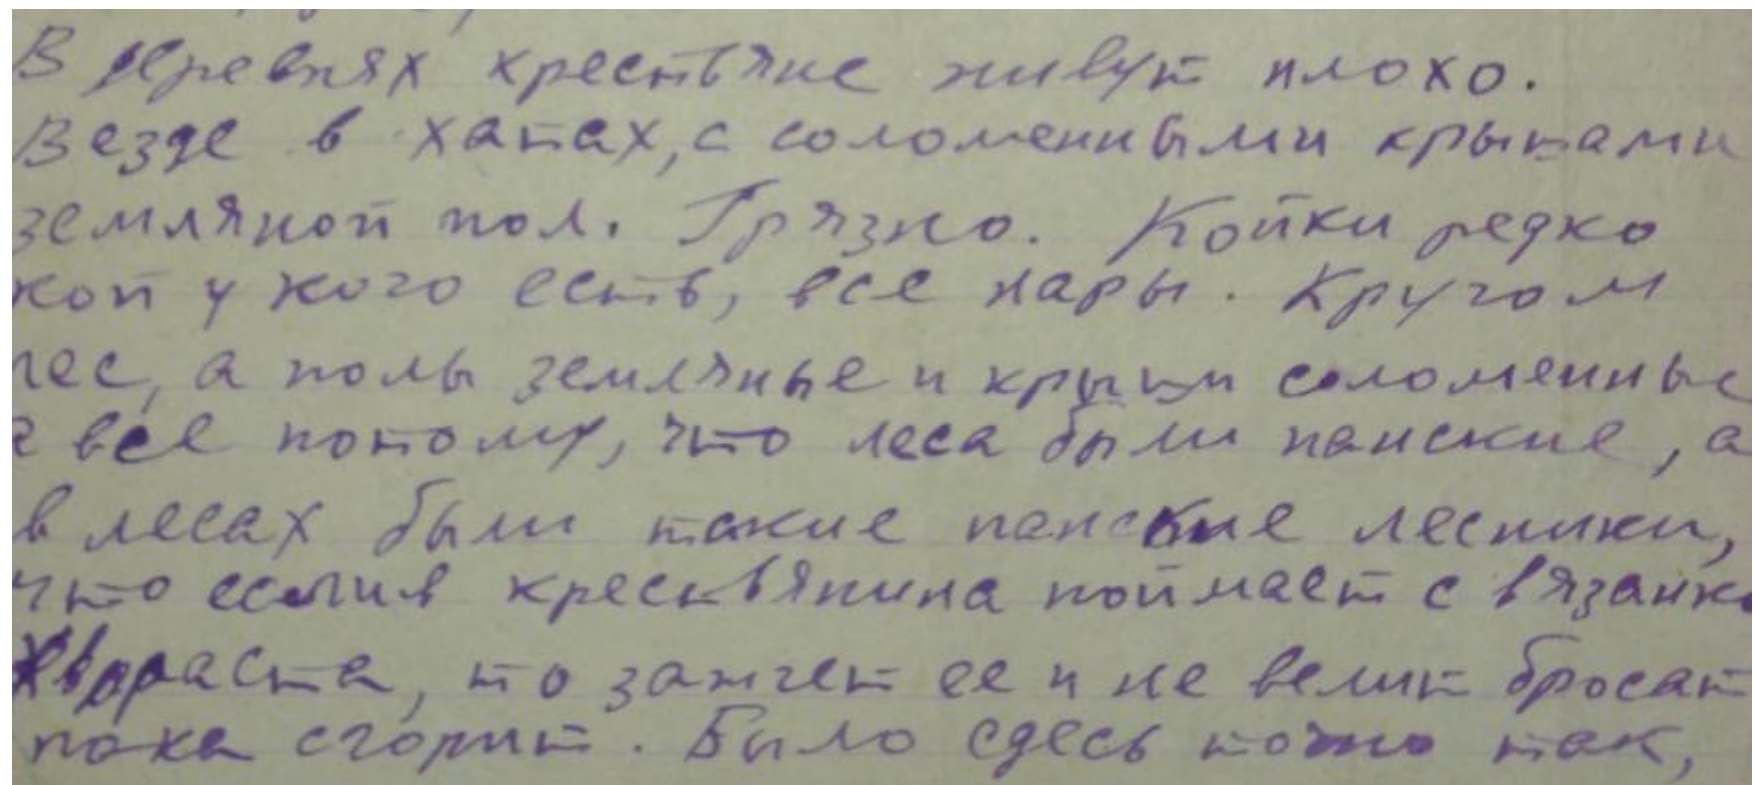 В деревнях крестьяне живут плохо.
Везде в хатах, с соломенными крышами
земляной пол. Грязно. Койки редко
кой у кого есть, все нары. Кругом
лес, а полы земляные и крыши соломенные
а все потому, что леса были панские, а
в лесах были такие панские лесники,
что если крестьянина поймает с вязанко
хвораста, то зажгет ее и не велит бросат
пока сгорит. Было сдесь точно так,